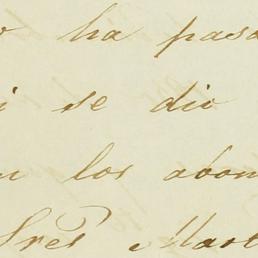 ha pasa
se dio
los abon
Sres Mart